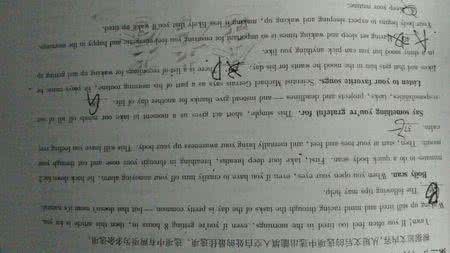 根据短文内容,从短文后的选项中选出能填入空白处的最佳选项。选项中有两项为多余选项。
Yawn! If you often feel too tired in the mornings, even if you're getting 8 hours in, then this article is for you.
up still tired and through the tasks of the day is pretty common — but that doesn't mean it's natural.
The following tips may help.
Body scan. When you open your eyes, even if you have to turn off your annoying alarm, lie back down
minutes to do a quick body scan. First, take four deep breaths, breathing in through your nose and out through your
mouth. Then, start at your toes and feet, and bring your awareness up your body. This will have you feeling
calm. 37
Say something you're grateful for. This simple, short act gives us a moment to take our minds off all of our
responsibilities, tasks, projects and deadlines — and instead give thanks for another day of life.
Listen to your favorite songs. Scientist Michael Gervais says as a part of his morning routine, he plays music he
and that gets him in the mood he wants for his day. There is a lot of recordings for waking up or getting up
in a great mood but you can pick anything you like.
set sleep and waking times is so important for ensuring you feel energetic and happy in the morning.
Your body begins to expect sleeping and waking up, making it less likely that you'll wake up tired.
your routine.